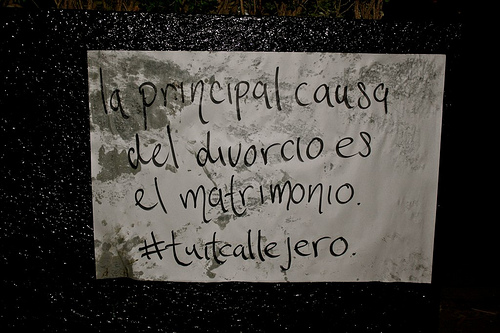 la principal causa
del divorcio es
el matrimonio.
#tuitcallejero.